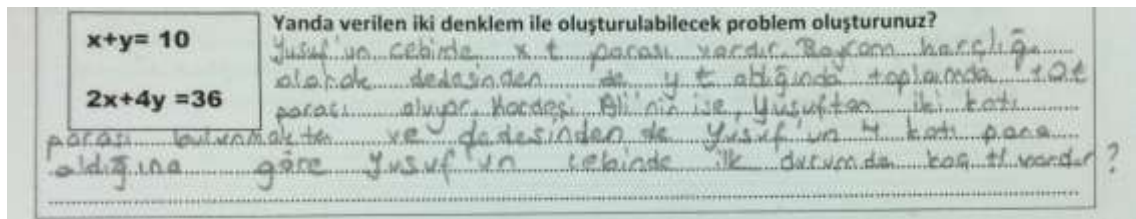 x+y= 10
2x+4y =36
Yanda verilen iki denklem ile oluşturulabilecek problem oluşturunuz?
Yusuf'un cebinde x ₺ parası vardır. Bayram harçlığı
olarak dedesinden de y ₺ aldığında toplamda 10₺
parası oluyor. Kardeşi Ali'nin ise, Yusuftan iki katı
parası bulunmakta ve dedesinden de Yusuf'un 4 katı para
aldığına göre Yusuf'un cebinde ilk durumda kaç tl vardır?